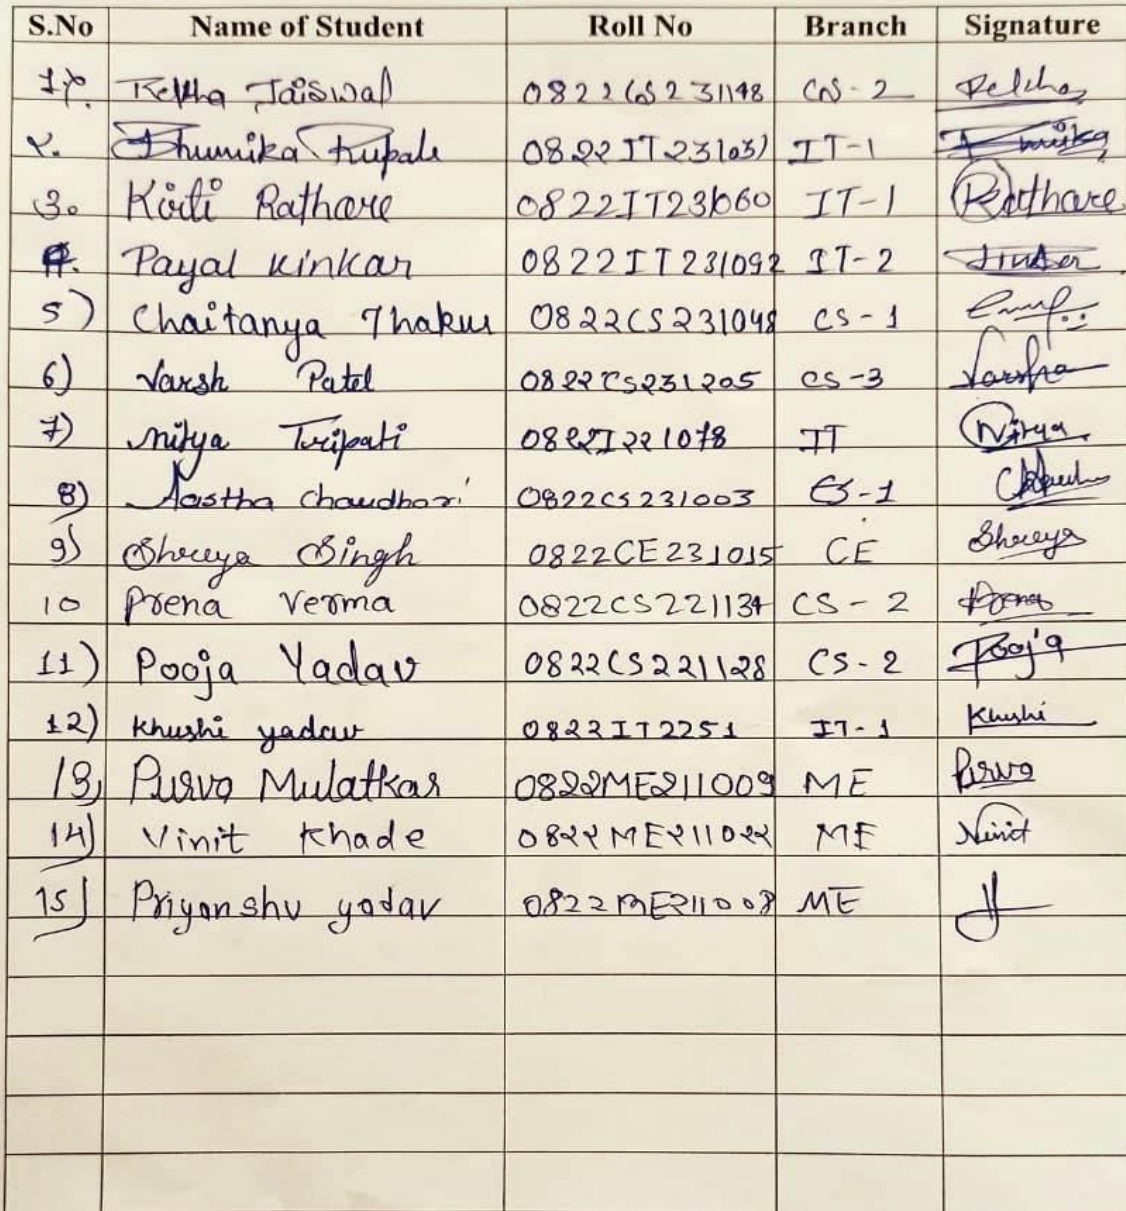 S.No Name of Student Roll No Branch Signature
1). Rekha Jaiswal 0822CS231148 CS-2 Rekha
2. Bhumika Rupale 0822IT231031 IT-1
3. Kirti Rathore 0822IT231060 IT-1 Rathore
4. Payal Kinkar 0822IT231092 IT-2
5) Chaitanya Thakur 0822CS231048 CS-1
6) Varsh Patel 0822CS231205 CS-3 Varsha
7) Nitya Tripati 0822I221078 IT Nitya
8) Aastha Chaudhari 0822CS231003 CS-1
9) Shreya Singh 0822CE231015 CE Shreya
10 Prena Verma 0822CS221134 CS-2 Prena
11) Pooja Yadav 0822CS221128 CS-2 Pooja
12) Khushi yadav 0822IT2251 IT-1 Khushi
13) Purva Mulatkar 0822ME211009 ME Purva
14) Vinit Khade 0822ME211022 ME Vinit
15) Priyanshu yadav 0822ME211008 ME